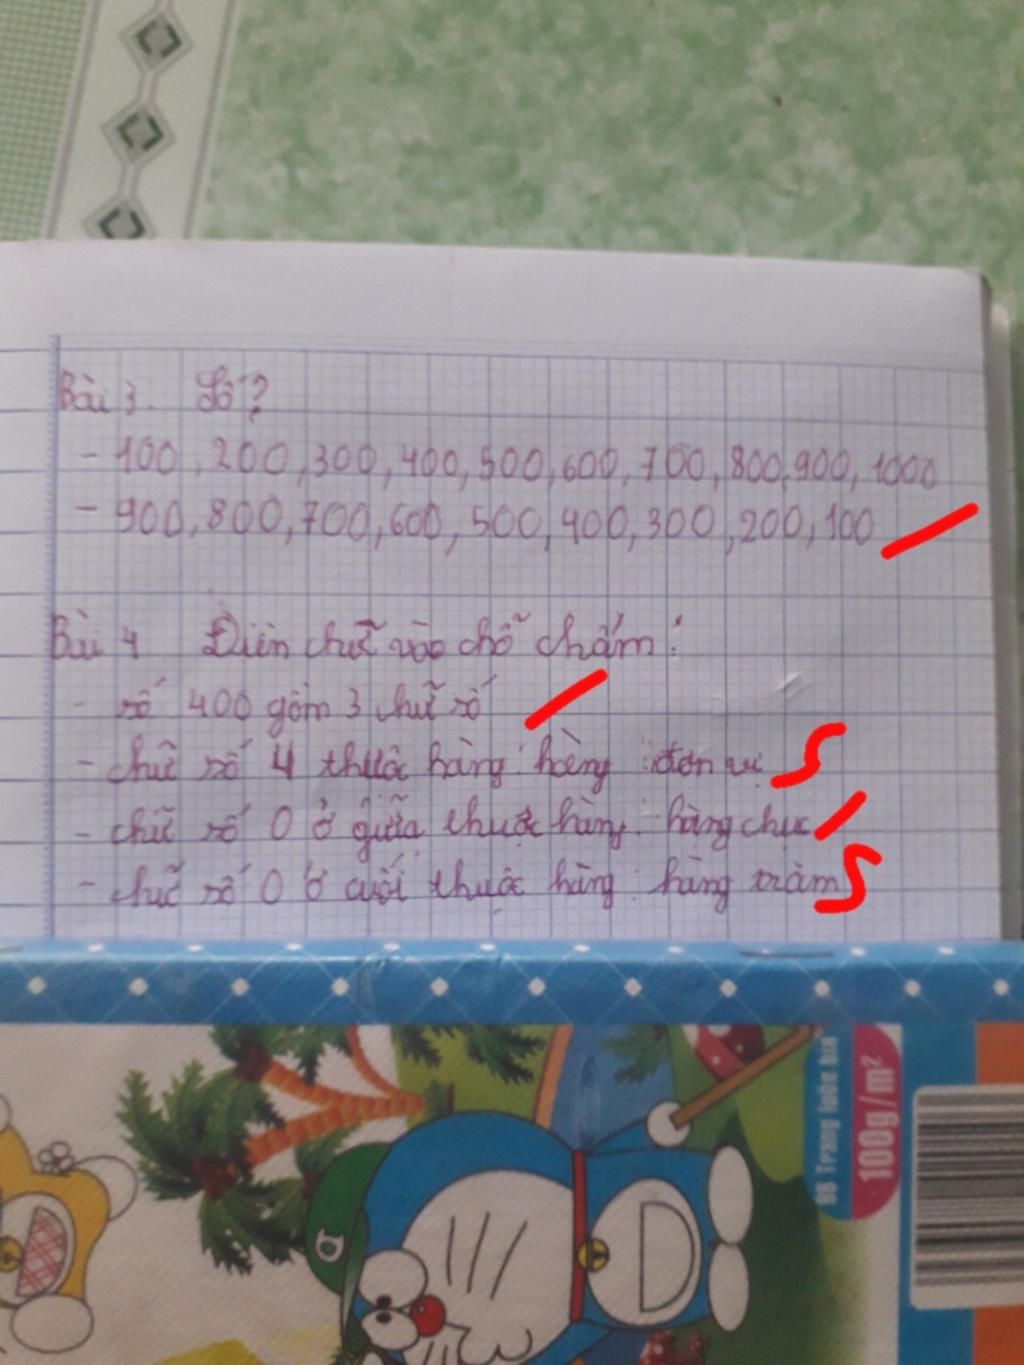 Bài 3. Số?
- 100, 200, 300, 400, 500, 600, 700, 800, 900, 1000
- 900, 800, 700, 600, 500, 400, 300, 200, 100
Bài 4 Điền chữ vào chỗ chấm:
- số 400 gồm 3 chữ số
- chữ số 4 thuộc hàng: hàng đơn vị S
- chữ số 0 ở giữa thuộc hàng: hàng chục
- chữ số 0 ở cuối thuộc hàng: hàng trăm S
96 Trang
100g/m²